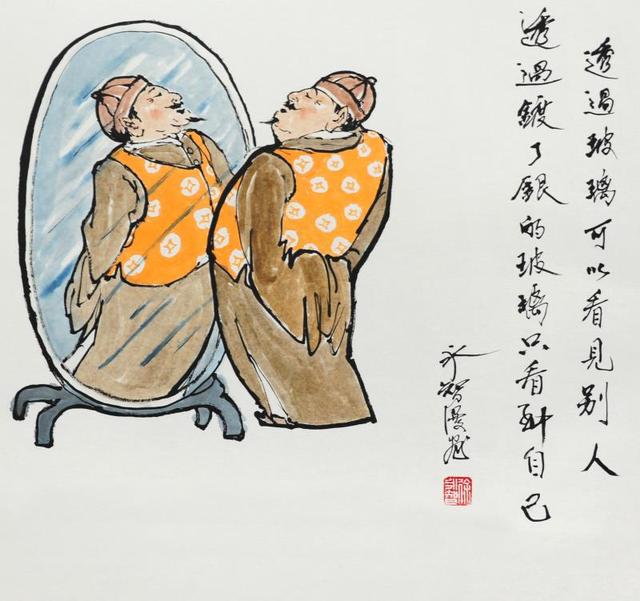 透過玻璃可以看見别人
透過鍍了銀的玻璃只看到自己
永智漫画